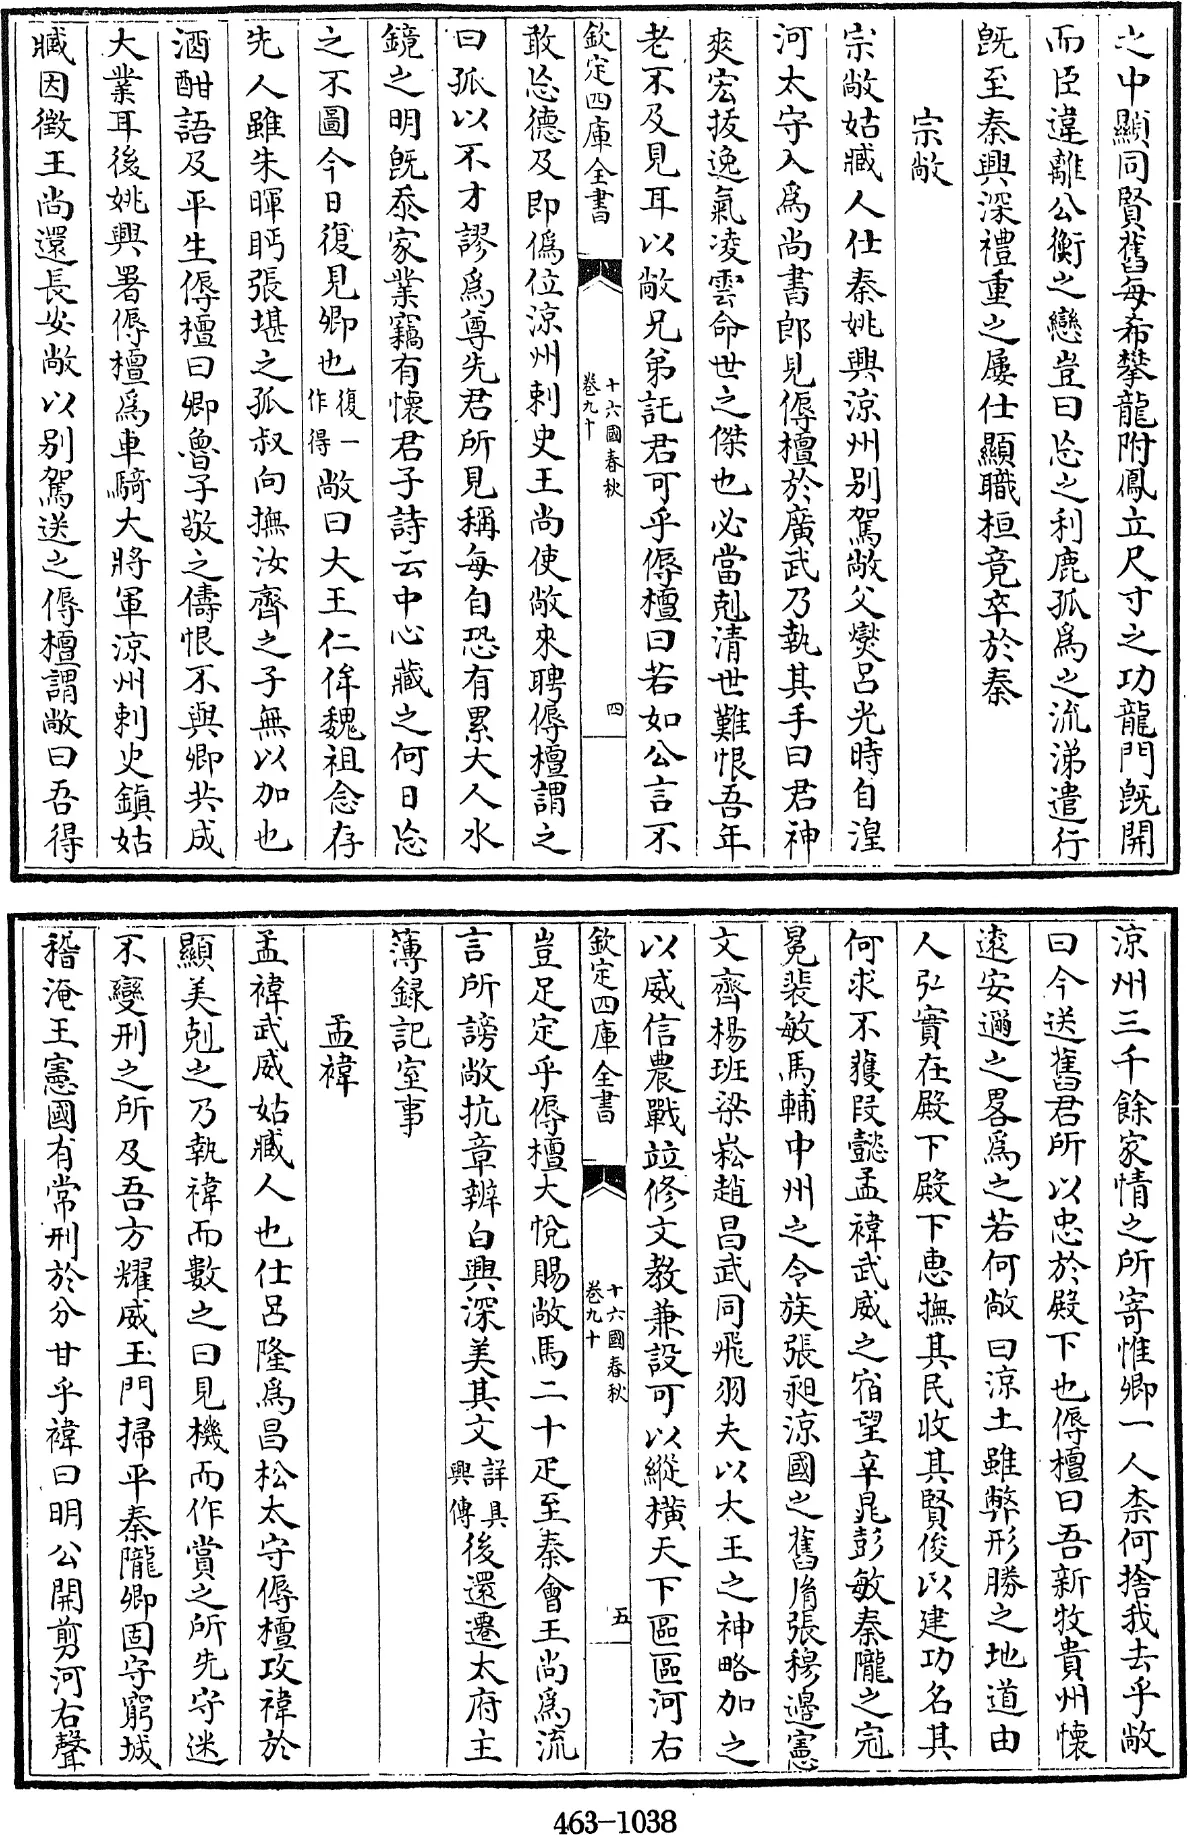 之中顯同賢舊每希攀龍附鳳立尺寸之功龍門旣開
而臣違離公衡之戀豈曰忘之利鹿孤爲之流涕遣行
旣至秦興深禮重之屢仕顯職桓竟卒於秦
宗敞
宗敞姑臧人仕秦姚興涼州别駕敞父爕呂光時自湟
河太守入爲尚書郎見傉檀於廣武乃執其手曰君神
爽宏拔逸氣凌雲命世之傑也必當剋清世難恨吾年
老不及見耳以敞兄弟託君可乎傉檀曰若如公言不
欽定四庫全書
十六國春秋
卷九十
四
敢忘德及即僞位涼州刺史王尚使敞來聘傉檀謂之
曰孤以不才謬爲尊先君所見稱每自恐有累大人水
鏡之明旣忝家業竊有懷君子詩云中心藏之何日忘
之不圖今日復見卿也復一作得敞曰大王仁侔魏祖念存
先人雖朱暉眄張堪之孤叔向撫汝齊之子無以加也
酒酣語及平生傉檀曰卿魯子敬之儔恨不與卿共成
大業耳後姚興署傉檀爲車騎大將軍涼州刺史鎮姑
臧因徵王尚還長安敞以别駕送之傉檀謂敞曰吾得
涼州三千餘家情之所寄惟卿一人柰何捨我去乎敞
曰今送舊君所以忠於殿下也傉檀曰吾新牧貴州懷
遠安邇之畧爲之若何敞曰涼土雖弊形勝之地道由
人弘實在殿下殿下惠撫其民收其賢俊以建功名其
何求不獲段懿孟褘武威之宿望辛晁彭敏秦隴之冠
冕裴敏馬輔中州之令族張昶涼國之舊胤張穆邊憲
文齊楊班梁崧趙昌武同飛羽夫以大王之神略加之
以威信農戰竝修文教兼設可以縱橫天下區區河右
欽定四庫全書
十六國春秋
卷九十
五
豈足定乎傉檀大悅賜敞馬二十疋至秦會王尚爲流
言所謗敞抗章辨白興深美其文詳具興傳後還遷太府主
薄錄記室事
孟褘
孟褘武威姑臧人也仕呂隆爲昌松太守傉檀攻褘於
顯美剋之乃執褘而數之曰見機而作賞之所先守迷
不變刑之所及吾方耀威玉門掃平秦隴卿固守窮城
稽淹王憲國有常刑於分甘乎褘曰明公開剪河右聲
463-1038